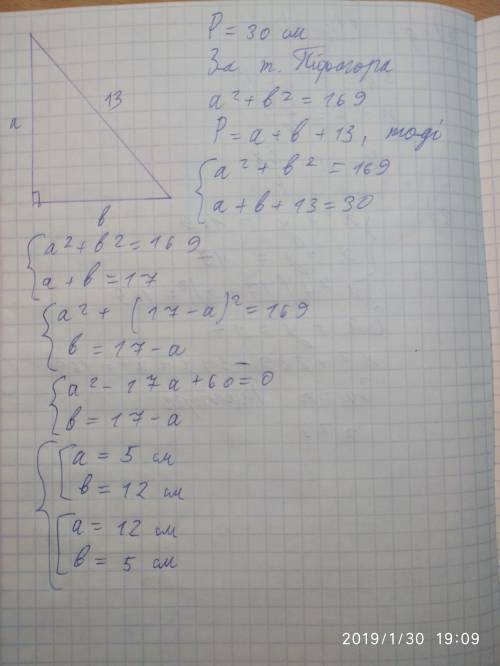 P = 30 см
За т. Піфагора
a² + b² = 169
P = a + b + 13, тоді
{ a² + b² = 169
a + b + 13 = 30
13
a
b
{ a² + b² = 169
a + b = 17
{ a² + (17 - a)² = 169
b = 17 - a
{ a² - 17a + 60 = 0
b = 17 - a
{ [ a = 5 см
b = 12 см
[ a = 12 см
b = 5 см
2019/1/30 19:09